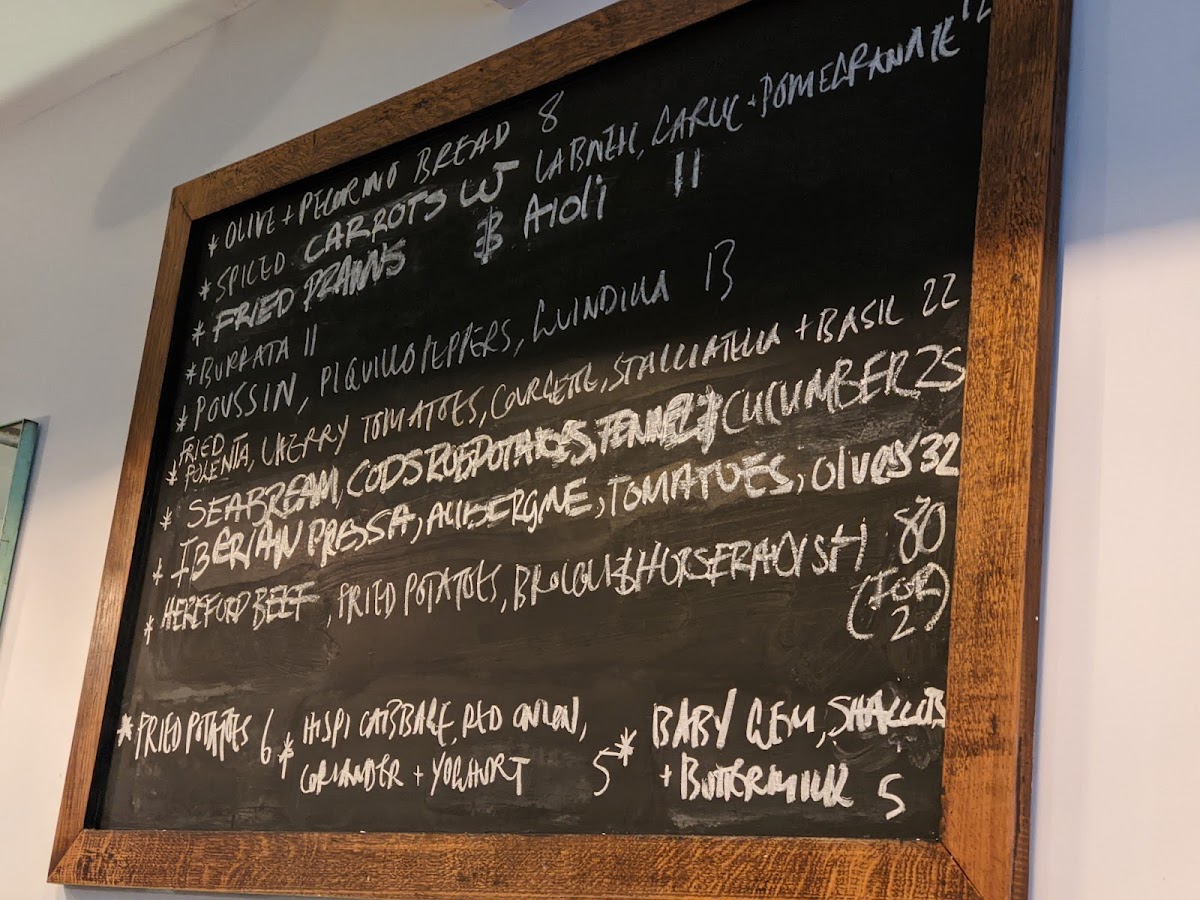 * OLIVE + PECORINO BREAD 8
* SPICED CARROTS W LABNEH, GARLIC + POMEGRANATE 12
* FRIED PRAWNS & AIOLI 11
* BURRATA 11
* POUSSIN, PIQUILLO PEPPERS, GUINDILLA 13
* FRIED POLENTA, CHERRY TOMATOES, COURGETTE, STALLIATELLA + BASIL 22
* SEABREAM, CODS ROE POTATOES, FENNEL & CUCUMBER 25
* IBERIAN PRESSA, AUBERGNE, TOMATOES, OLIVES 32
* HEREFORD BEEF, FRIED POTATOES, BROCOLI & HORSERADISH 80
(FOR 2)
* FRIED POTATOES 6
* HISPI CABBAGE, RED ONION,
CORIANDER + YOGHURT 5
* BABY GEM, SHALLOTS
+ BUTTERMILK 5